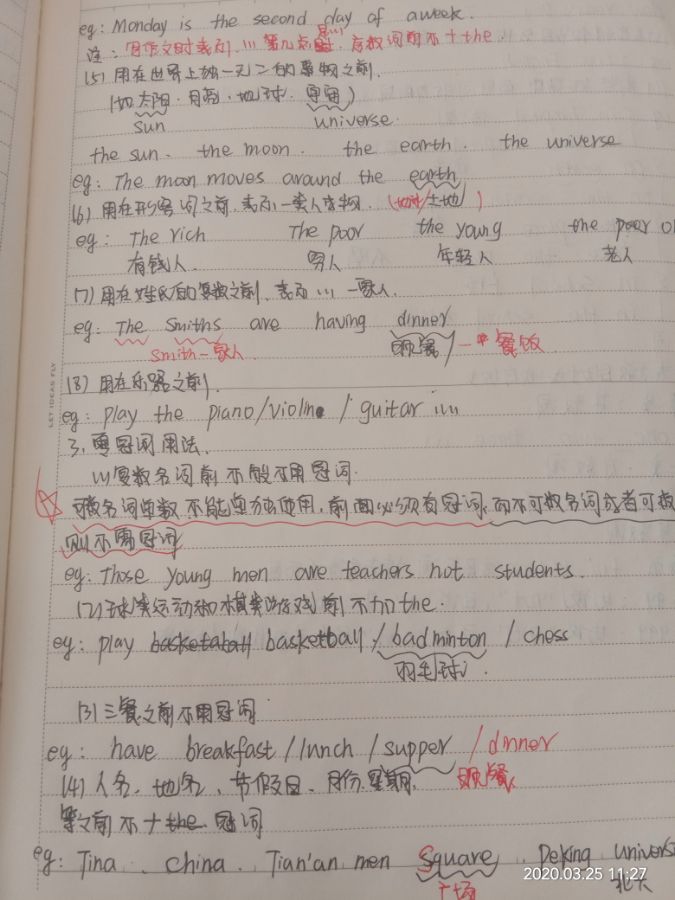 eg: Monday is the second day of a week.
注: 用作文时表示 … 第几点时, 序数词前不+the.
(5) 用在世界上独一无二的事物之前.
(如太阳、月亮、地球、宇宙)
sun universe.
the sun. the moon. the earth. the universe
eg: The moon moves around the earth
(6) 用在形容词之前, 表示一类人事物. (地球/土地)
eg: The rich The poor the young the poor ol
有钱人 穷人 年轻人 老人
(7) 用在姓氏的复数之前, 表示 … 一家人.
eg: The Smiths are having dinner
Smith一家人 晚餐 一餐饭
(8) 用在乐器之前.
eg: play the piano/violin / guitar ….
LET IDEAS FLY
3. 零冠词用法.
(1) 复数名词前不能不用冠词.
可数名词单数不能单独使用, 前面必须有冠词, 而不可数名词或者可数
则不需冠词
eg: Those young men are teachers not students.
(2) 球类运动和棋类游戏前不加the.
eg: play basketaball basketball / badminton / chess
羽毛球.
(3) 三餐之前不用冠词
eg: have breakfast / lunch / supper / dinner
(4) 人名、地名、节假日、月份、星期. 晚餐
等之前不+the 冠词
eg: Tina. China. Tian'an men Square, Peking Universi
广场 北大
2020.03.25 11:27